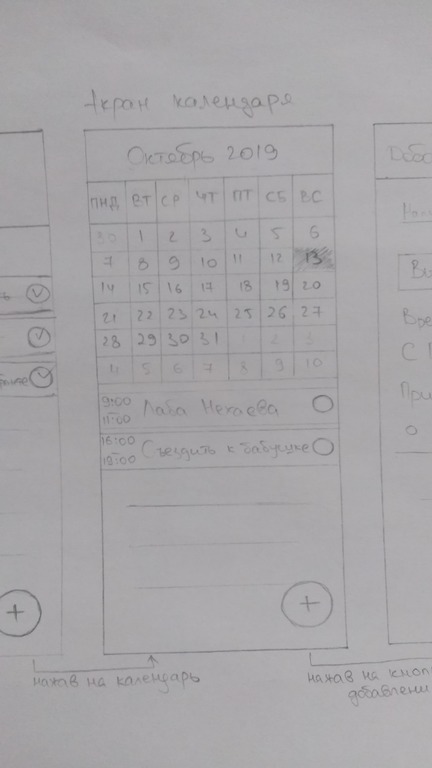 Экран календаря
Октябрь 2019
ПНД ВТ СР ЧТ ПТ СБ ВС
30 1 2 3 4 5 6
7 8 9 10 11 12 13
14 15 16 17 18 19 20
21 22 23 24 25 26 27
28 29 30 31 1 2 3
4 5 6 7 8 9 10
9:00
11:00
Лаба Нехаева
16:00
18:00
Съездить к бабушке
+
+
нажав на календарь
нажав на кноп
добавлени
Доба
Вре
С
При